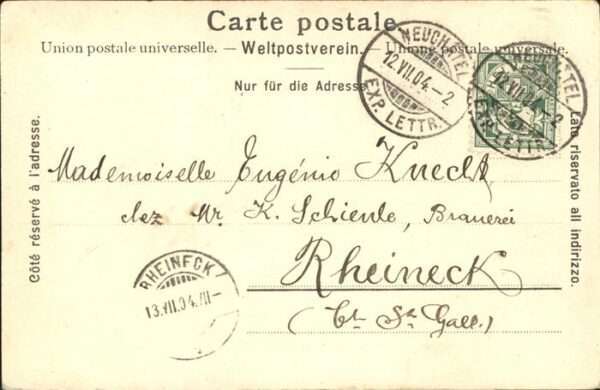 Carte postale.
Union postale universelle. — Weltpostverein. — Unione postale universale.
Nur für die Adresse
Côté réservé à l'adresse.
Lato riservato all indirizzo.
NEUCHATEL
12.VII.04.-2
EXP. LETTR.
NEUCHATEL
12.VII.04.-2
EXP. LETTR.
Mademoiselle Eugénie Knecht
chez Mr. K. Schienle, Brauerei
Rheineck
(Ct. St. Gall.)
RHEINECK
13.VII.04.VII-